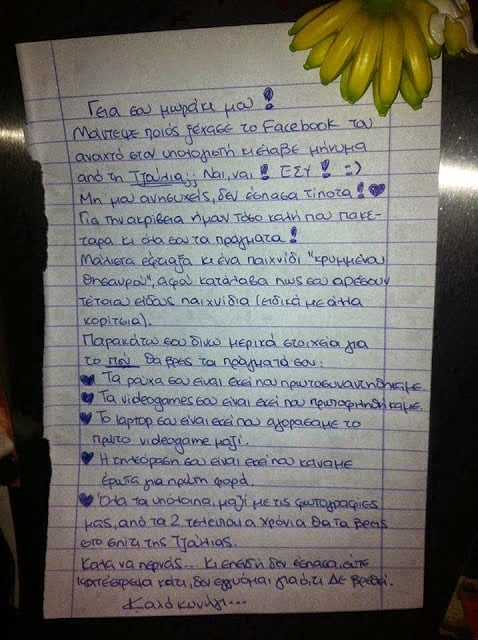 Γεια σου μωράκι μου!
Μάντεψε ποιός ξέχασε το Facebook του
ανοιχτό στον υπολογιστή κι έλαβε μήνυμα
από τη Τζούλια;; Ναι, ναι! ΕΣΥ! :)
Μη μου ανησυχείς, δεν έσπασα τίποτα!
Για την ακρίβεια ήμουν τόσο καλή που πακε-
ταρα κι όλα σου τα πράγματα!
Μάλιστα έφτιαξα κι ένα παιχνίδι "κρυμμένου
θησαυρού", αφού κατάλαβα πως σου αρέσουν
τέτοια είδους παιχνίδια (ειδικά με άλλα
κορίτσια).
Παρακάτω σου δίνω μερικά στοιχεία για
το πού θα βρεις τα πράγματά σου:
Τα ρούχα σου είναι εκεί που πρωτοσυναντηθήκαμε.
Τα videogames σου είναι εκεί που πρωτοφιληθήκαμε.
Το laptop σου είναι εκεί που αγοράσαμε το
πρώτο videogame μαζί.
Η τηλεόραση σου είναι εκεί που κάναμε
έρωτα για πρώτη φορά.
Όλα τα υπόλοιπα, μαζί με τις φωτογραφίες
μας, από τα 2 τελευταία χρόνια θα τα βρεις
στο σπίτι της Τζούλιας.
Καλά να περνάς... Κι επειδή δεν έσπασα, ούτε
κατέστρεψα κάτι, δεν εγγυώμαι για ό,τι δε βρεθεί.
Καλό κυνήγι...